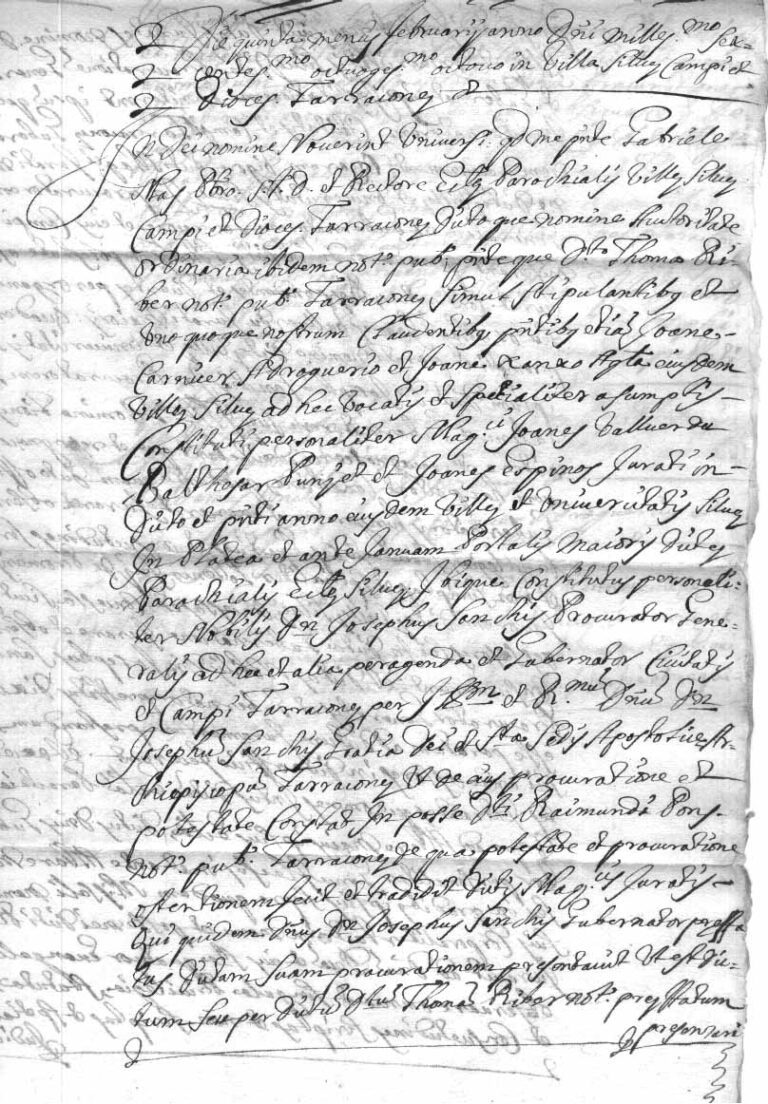 Die quinta mensis februarij anno Dni Milles.mo sex-
centes.mo octuages.mo octavo in Villa Silvę Campi et
Dioces. Tarracoñ et
In Dei nomine Noverint Universi. qd me pñte Gabriele
Mas Pbro. S.T.D. et Rectore Eccę Parochialis Villę Silvę
Campi et Dioces. Tarracoñ dicto que nomine Authoritate
ordinaria ibidem not. pub. pñte que D. Thoma Ri-
ber not. pub. Tarracoñ simul stipulantibq et
uno quo que nostrum Claudentibq pñtibq etiã Joane
Carnicer Adroguerio et Joane eiusdem
Villę Silvę ad hec vocatis et specialiter assumptis
Constituti personaliter Mag.ci Joanes Vallverdu
Balthasar Punyet et Joanes Espinos Jurati in
dicto et pñti anno eiusdem Villę et Universitatis Silvę
In Platea et ante Januam Portalis Maioris dictę
Parochialis Eccę Silvę, Ibique Constitutus personali-
ter Nobilis Dn Josephus Sanchis Procurator Gene-
ralis ad hec et alia peragenda et Gubernator Civitatis
et Campi Tarracoñ per Illm et R.mũ Dnũ Dn
Josephũ Sanchis Gratia Dei et Stã Sedis Apostolicę Ar-
chiepiscopũ Tarracoñ Ut de eius procuratione et
potestate Constat In posse D. Raimundi Pons
not. pub. Tarracoñ de qua potestate et procuratione
ostentionem fecit et tradidit dictis Mag.cis Juratis
Qui quidem Dnus Dn Josephus Sanchis Gubernator preffa
tus dictam suam procurationem presentavit Ut est dic-
tum seu per dictũ D. Thomã Riber not. preffatum
presentari